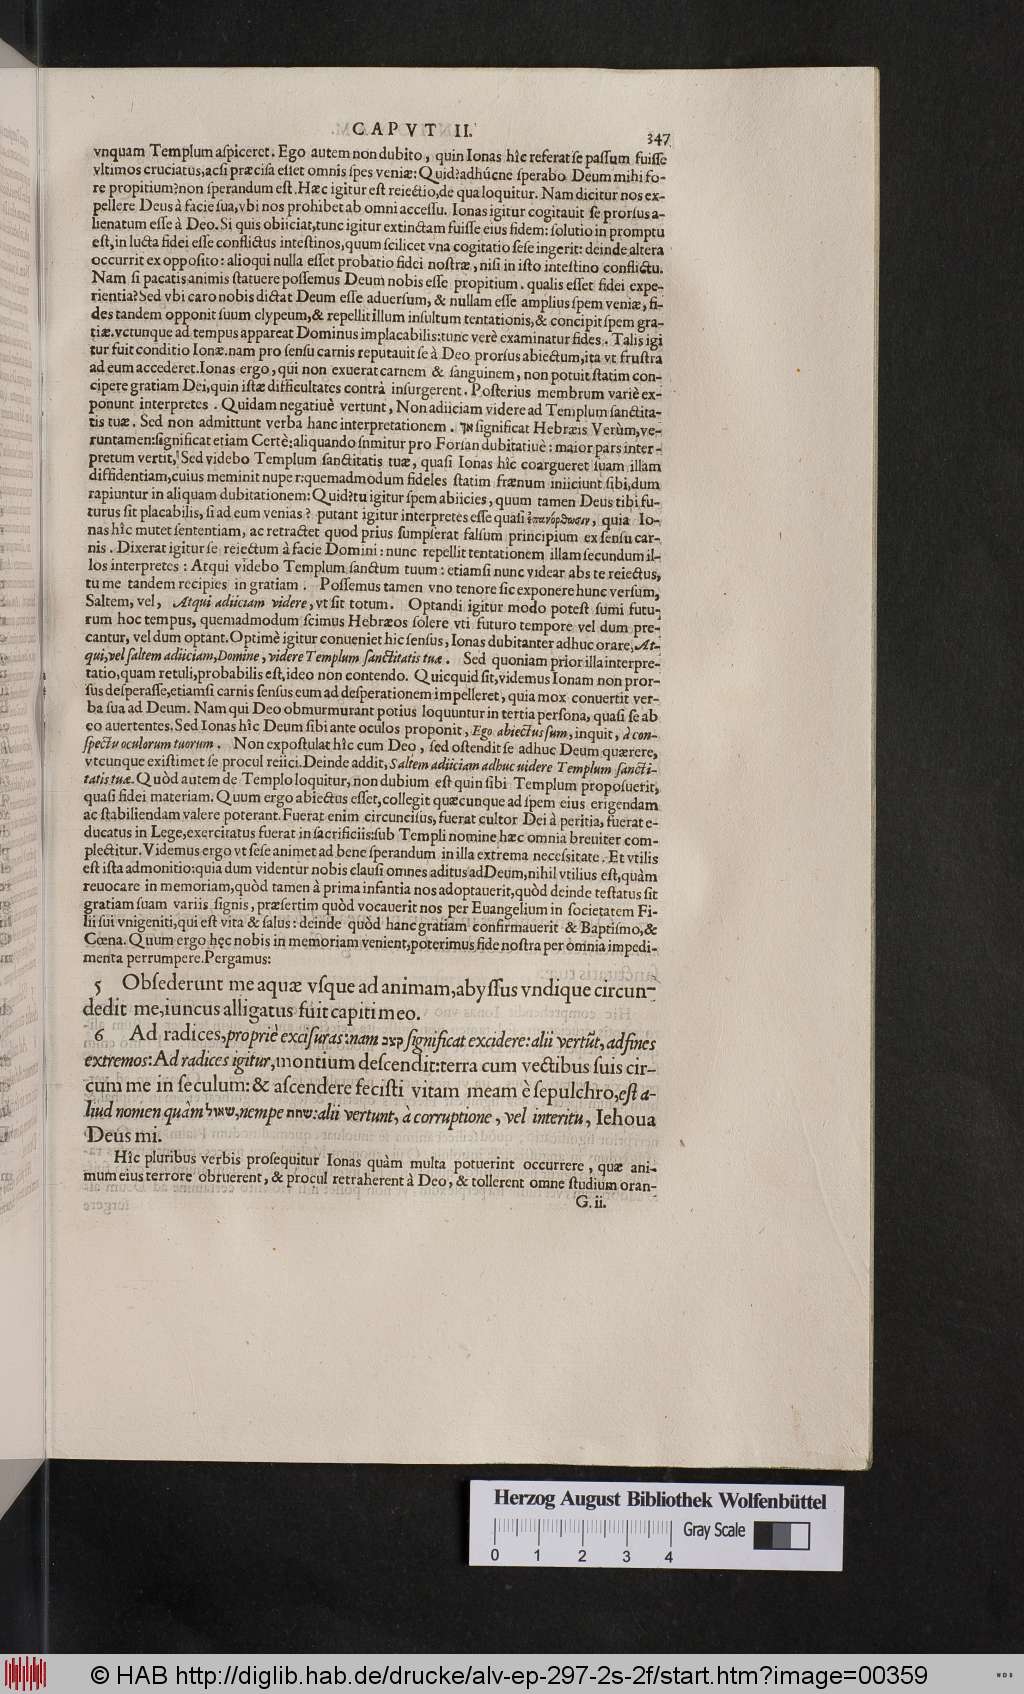 CAPVT II.
347
vnquam Templum aſpiceret. Ego autem non dubito, quin Ionas hîc referat ſe paſſum fuiſſe
vltimos cruciatus, acſi præciſa eſſet omnis ſpes veniæ: Quid? adhúcne ſperabo Deum mihi fo-
re propitium? non ſperandum eſt. Hæc igitur eſt reiectio, de qua loquitur. Nam dicitur nos ex-
pellere Deus à facie ſua, vbi nos prohibet ab omni acceſſu. Ionas igitur cogitauit ſe prorſus a-
lienatum eſſe à Deo. Si quis obiiciat, tunc igitur extinctam fuiſſe eius fidem: ſolutio in promptu
eſt, in lucta fidei eſſe conflictus inteſtinos, quum ſcilicet vna cogitatio ſeſe ingerit: deinde altera
occurrit ex oppoſito: alioqui nulla eſſet probatio fidei noſtræ, niſi in iſto inteſtino conflictu.
Nam ſi pacatis animis ſtatuere poſſemus Deum nobis eſſe propitium. qualis eſſet fidei expe-
rientia? Sed vbi caro nobis dictat Deum eſſe aduerſum, & nullam eſſe amplius ſpem veniæ, fi-
des tandem opponit ſuum clypeum, & repellit illum inſultum tentationis, & concipit ſpem gra-
tiæ. vtcunque ad tempus appareat Dominus implacabilis: tunc verè examinatur fides. Talis igi
tur fuit conditio Ionæ. nam pro ſenſu carnis reputauit ſe à Deo prorſus abiectum, ita vt fruſtra
ad eum accederet. Ionas ergo, qui non exuerat carnem & ſanguinem, non potuit ſtatim con-
cipere gratiam Dei, quin iſtæ difficultates contrà inſurgerent. Poſterius membrum variè ex-
ponunt interpretes. Quidam negatiuè vertunt, Non adiiciam videre ad Templum ſanctita-
tis tuæ. Sed non admittunt verba hanc interpretationem. אך ſignificat Hebræis Verùm, ve-
runtamen: ſignificat etiam Certè: aliquando ſumitur pro Forſan dubitatiuè: maior pars inter-
pretum vertit, Sed videbo Templum ſanctitatis tuæ, quaſi Ionas hîc coargueret ſuam illam
diffidentiam, cuius meminit nuper: quemadmodum fideles ſtatim frænum iniiciunt ſibi, dum
rapiuntur in aliquam dubitationem: Quid? tu igitur ſpem abiicies, quum tamen Deus tibi fu-
turus ſit placabilis, ſi ad eum venias? putant igitur interpretes eſſe quaſi ἐπανόρθωσιν, quia Io-
nas hîc mutet ſententiam, ac retractet quod prius ſumpſerat falſum principium ex ſenſu car-
nis. Dixerat igitur ſe reiectum à facie Domini: nunc repellit tentationem illam ſecundum il-
los interpretes: Atqui videbo Templum ſanctum tuum: etiamſi nunc videar abs te reiectus,
tu me tandem recipies in gratiam. Poſſemus tamen vno tenore ſic exponere hunc verſum,
Saltem, vel, Atqui adiiciam videre, vt ſit totum. Optandi igitur modo poteſt ſumi futu-
rum hoc tempus, quemadmodum ſcimus Hebræos ſolere vti futuro tempore vel dum pre-
cantur, vel dum optant. Optimè igitur conueniet hic ſenſus, Ionas dubitanter adhuc orare, At-
qui, vel ſaltem adiiciam, Domine, videre Templum ſanctitatis tuæ. Sed quoniam prior illa interpre-
tatio, quam retuli, probabilis eſt, ideo non contendo. Quicquid ſit, videmus Ionam non pror-
ſus deſperaſſe, etiamſi carnis ſenſus eum ad deſperationem impelleret, quia mox conuertit ver-
ba ſua ad Deum. Nam qui Deo obmurmurant potius loquuntur in tertia perſona, quaſi ſe ab
eo auertentes. Sed Ionas hîc Deum ſibi ante oculos proponit, Ego abiectus ſum, inquit, à con-
ſpectu oculorum tuorum. Non expoſtulat hîc cum Deo, ſed oſtendit ſe adhuc Deum quærere,
vtcunque exiſtimet ſe procul reiici. Deinde addit, Saltem adiiciam adhuc videre Templum ſancti-
tatis tuæ. Quòd autem de Templo loquitur, non dubium eſt quin ſibi Templum propoſuerit,
quaſi fidei materiam. Quum ergo abiectus eſſet, collegit quæcunque ad ſpem eius erigendam
ac ſtabiliendam valere poterant. Fuerat enim circunciſus, fuerat cultor Dei à peritia, fuerat e-
ducatus in Lege, exercitatus fuerat in ſacrificiis: ſub Templi nomine hæc omnia breuiter com-
plectitur. Videmus ergo vt ſeſe animet ad bene ſperandum in illa extrema neceſsitate. Et vtilis
eſt iſta admonitio: quia dum videntur nobis clauſi omnes aditus ad Deum, nihil vtilius eſt, quàm
reuocare in memoriam, quòd tamen à prima infantia nos adoptauerit, quòd deinde teſtatus ſit
gratiam ſuam variis ſignis, præſertim quòd vocauerit nos per Euangelium in ſocietatem Fi-
lii ſui vnigeniti, qui eſt vita & ſalus: deinde quòd hanc gratiam confirmauerit & Baptiſmo, &
Cœna. Quum ergo hęc nobis in memoriam venient, poterimus fide noſtra per omnia impedi-
menta perrumpere. Pergamus:
5 Obſederunt me aquæ vſque ad animam, abyſſus vndique circun-
dedit me, iuncus alligatus fuit capiti meo.
6 Ad radices, propriè exciſuras: nam קצב ſignificat excidere: alii vertũt, ad fines
extremos: Ad radices igitur, montium deſcendi: terra cum vectibus ſuis cir-
cum me in ſeculum: & aſcendere feciſti vitam meam è ſepulchro, eſt a-
liud nomen quàm שאול, nempe שחת: alii vertunt, à corruptione, vel interitu, Iehoua
Deus mi.
Hîc pluribus verbis proſequitur Ionas quàm multa potuerint occurrere, quæ ani-
mum eius terrore obruerent, & procul retraherent à Deo, & tollerent omne ſtudium oran-
G. ii.
Herzog August Bibliothek Wolfenbüttel
Gray Scale
0 1 2 3 4
© HAB http://diglib.hab.de/drucke/alv-ep-297-2s-2f/start.htm?image=00359